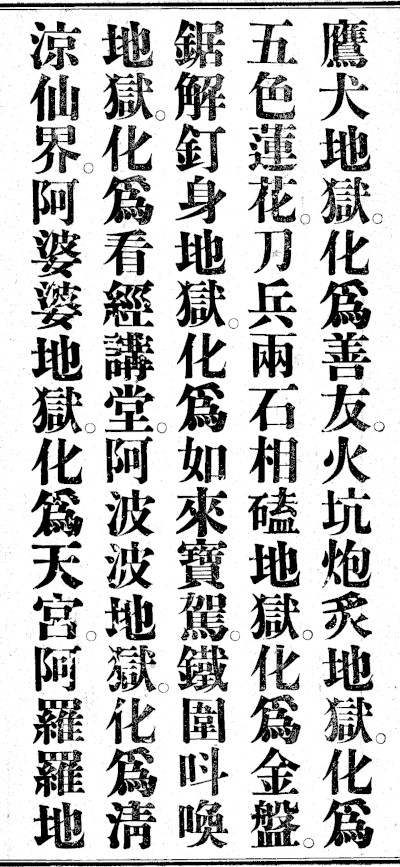 鷹犬地獄。化爲善友。火坑炮炙地獄。化爲
五色蓮花。刀兵兩石相磕地獄。化爲金盤。
鋸解釘身地獄。化爲如來寶駕。鐵圍呌喚
地獄。化爲看經講堂。阿波波地獄。化爲淸
涼仙界。阿婆婆地獄。化爲天宮。阿羅羅地